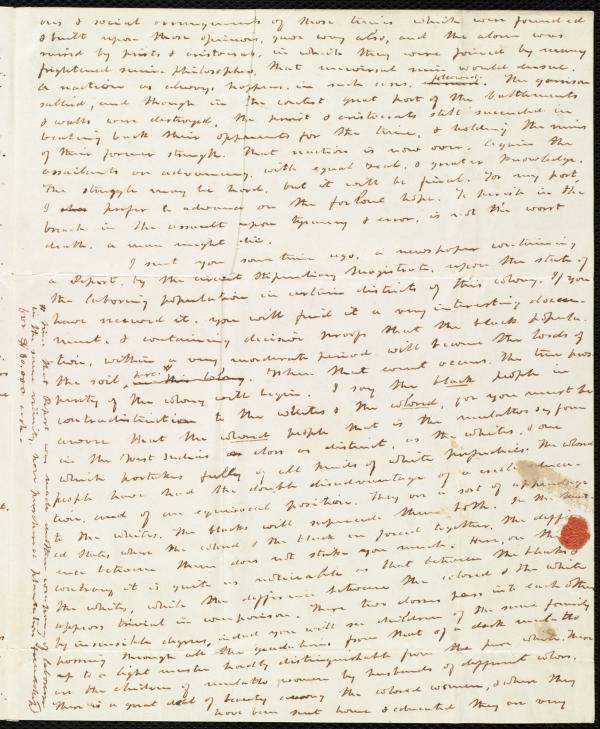 ous & social arrangements of those times which were founded
& built upon those opinions, gave way also, and the alarm was
raised by priests & aristocrats, in which they were joined by many
frightened semi-philosophers, that universal ruin would ensue.
A reaction as always happens, in such cases, followed. The garrison
sallied, and though in the contest great part of the battlements
& walls were destroyed, the priest & aristocrats still succeeded in
beating back their opponents for the time, & holding the ruins
of their former strength. That reaction is now over. Again the
assailants are advancing, with equal zeal, & greater knowledge.
The struggle may be hard, but it will be final. For my part,
I prefer to advance on the forlorn hope. To perish in the
breach in the assault upon tyranny & error, is not the worst
death, a man might die.
I sent you some time ago, a newspaper containing
a Report, by the circuit Stipendiary Magistrate, upon the state of
the laboring population in certain districts of this colony. If you
have received it, you will find it a very interesting docu-
ment, & containing decisive proofs that the black popula-
tion, within a very moderate period will become the lords of
the soil, When that event occurs, the true pros
perity of the colony will begin. I say the black people in
contradistinction to the whites & the colored, for you must be
aware that the colored people that is the mulattoes &c form
in the West Indies a class as distinct, as the whites, & one
which partakes fully of all kinds of white prejudices. The colored
people have had the double disadvantage of a educa-
tion, and of an equivocal position. They are a sort of appendage
to the whites. The blacks will supersede them both. In the Unit-
ed States where the colored & the black are forced together, the differ-
ence between them does not strike you much. Here, on the
contrary it is quite as noticeable as that between the blacks &
the whites, while the difference between the colored & the white
appears trivial in comparison. These two classes pass into each other
by insensible degrees, indeed you will see children of the same family
passing through all the gradations from that of dark mulatto
up to a light hardly distinguishable from the pure white. These
are the children of mulatto women by husbands of different colors.
There is a great deal of beauty among the colored women, & where they
have been sent home & educated they are very
* Since that Report was made another company of laborers
in the same vicinity, have purchased plantation
for $80.000 cash.